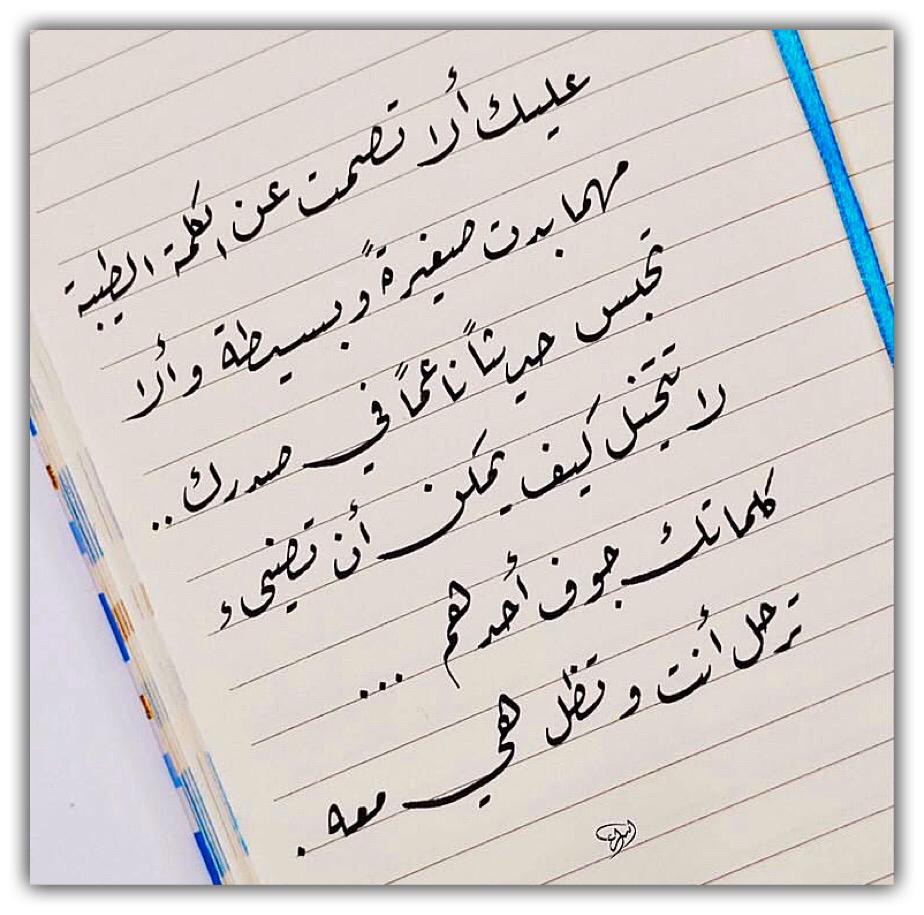 عليك ألا تصمت عن الكلمة الطيبة
مهما بدت صغيرةً وبسيطة وألا
تحبس حديثاً ناعماً في صدرك ..
لا تتخيل كيف يمكن أن تضيء
كلماتك جوف أحدهم ...
ترحل أنت و تظل هي معه .